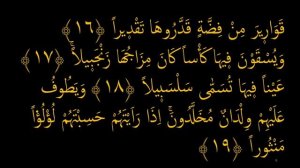 قَوَارِيرَ مِنْ فِضَّةٍ قَدَّرُوهَا تَقْدِيراً ﴿١٦﴾
وَيُسْقَوْنَ فِيهَا كَأْساً كَانَ مِزَاجُهَا زَنْجَبِيلاً ﴿١٧﴾
عَيْناً فِيهَا تُسَمَّى سَلْسَبِيلاً ﴿١٨﴾ وَيَطُوفُ
عَلَيْهِمْ وِلْدَانٌ مُخَلَّدُونَ إِذَا رَأَيْتَهُمْ حَسِبْتَهُمْ لُؤْلُؤاً
مَنْثُوراً ﴿١٩﴾